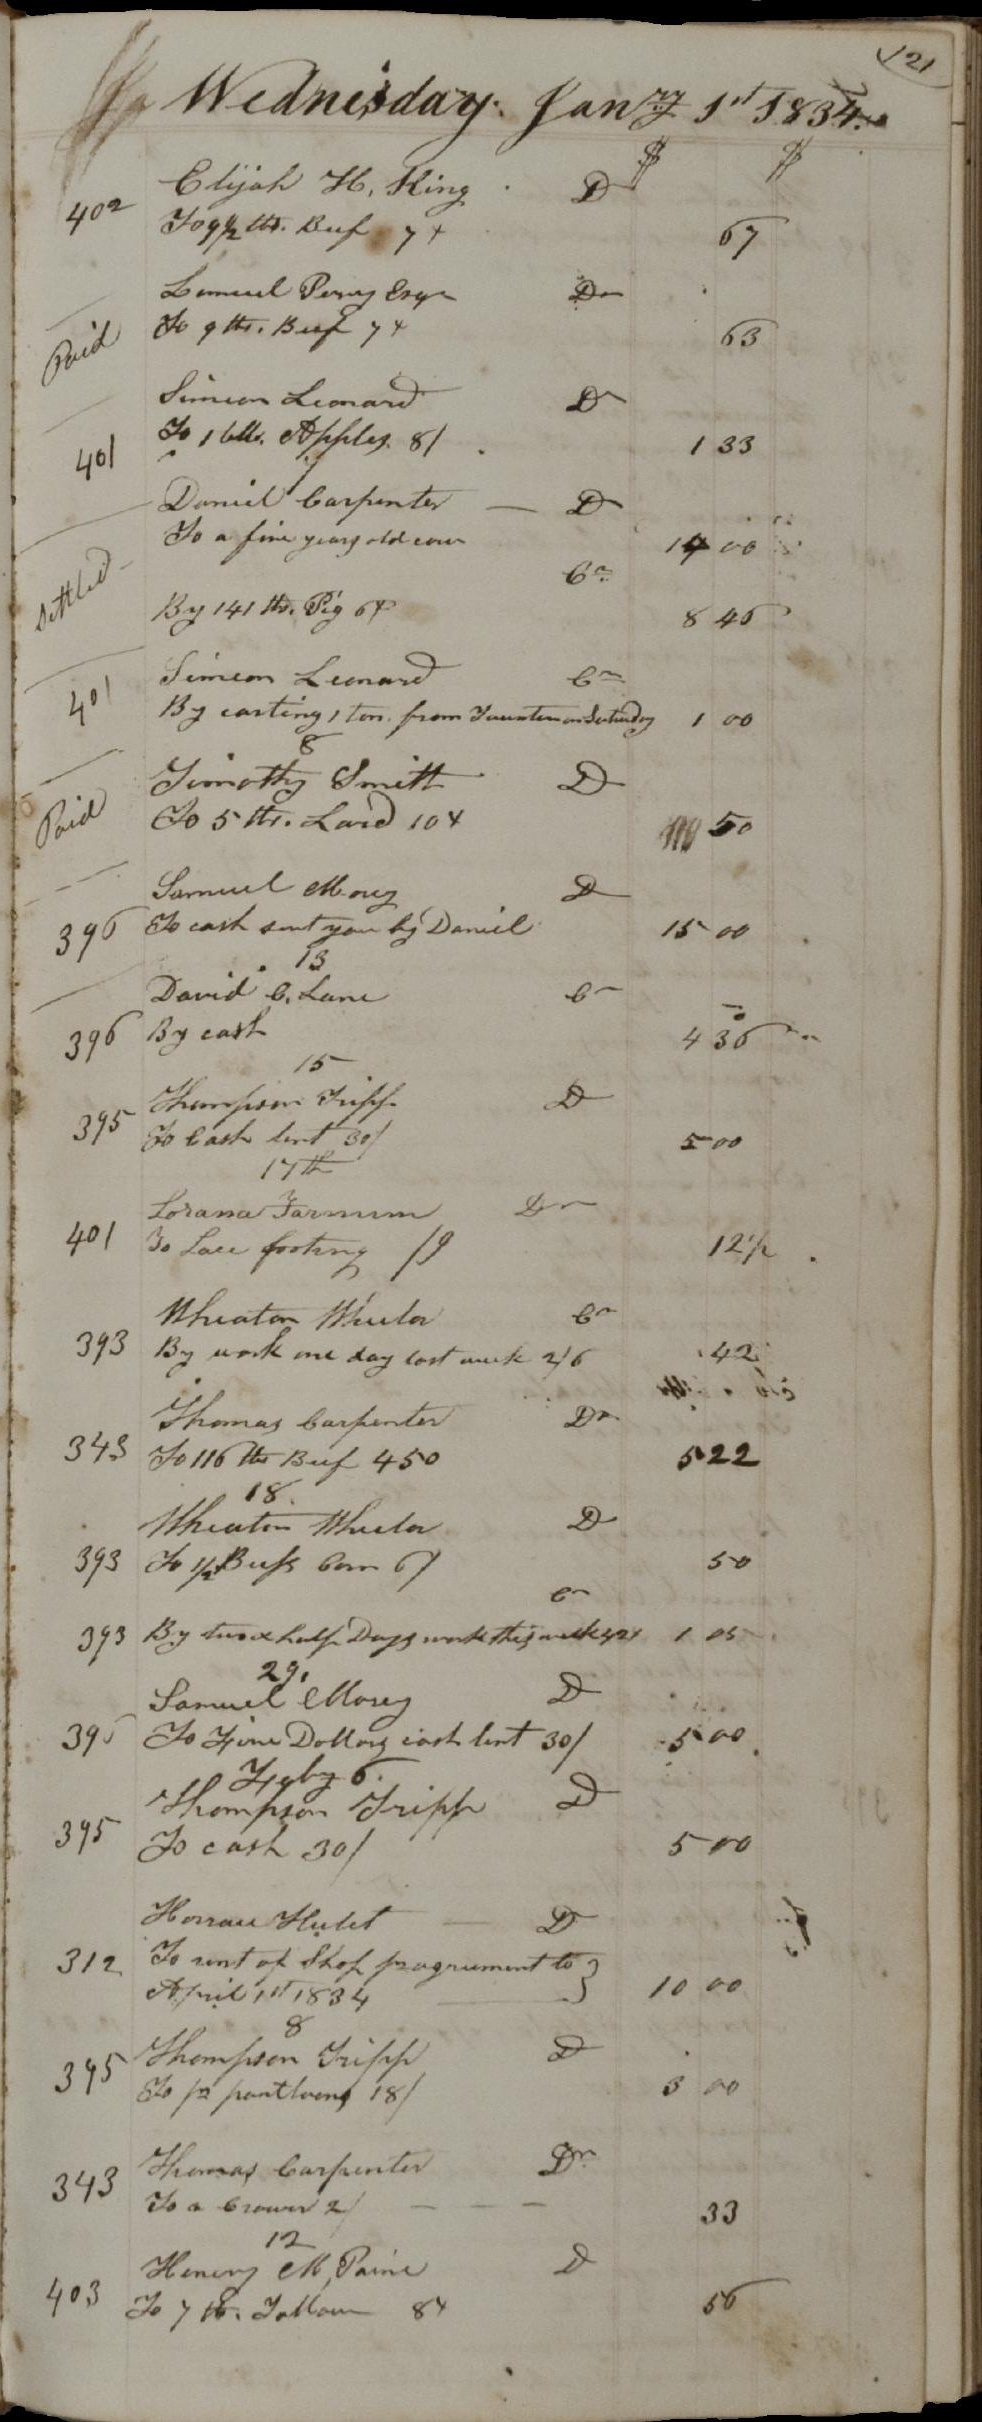 121
Wednesday. Janry 1st 1834.
$ $
Elijah H. King D
402 To 9 1/2 lbs. Beef 7 67
Lemuel Perry Esqr Dr
Paid To 9 lbs. Beef 7 63
Simeon Leonard D
401 To 1 bbl. Apples. 8/ 1 33
7
Daniel Carpenter D
To a five years old cow 14 00
Cr
Settled By 141 lbs. Pig 6 8 46
Simeon Leonard Cr
401 By carting 1 ton from Taunton on Saturday 1 00
8
Timothy Smith D
Paid To 5 lbs. Lard 10 50
Samuel Morey D
396 To cash sent you by Daniel 15 00
13
David C. Lane Cr
396 By cash 4 36
15
Thompson Tripp D
395 To Cash lent 30/ 5 00
17th
Lorana Farnum Dr
401 To Lace footing /9 12 1/2
Wheaton Wheelor Cr
393 By work one day last week 2/6 42
Thomas Carpenter Dr
343 To 116 lbs Beef 450 5 22
18
Wheaton Wheelor D
393 To 1/2 Bush Corn 6/ 50
Cr
393 By two & half Days work this week 1 05
29.
Samuel Morey D
396 To Five Dollars cash lent 30/ 5 00
Feby 6.
Thompson Tripp D
395 To cash 30/ 5 00
Horrace Hulet D
312 To rent of Shop pragrument to
April 1st 1834 10 00
8
Thompson Tripp D
395 To pr pantloons 18/ 3 00
Thomas Carpenter Dr
343 To a Crower 2/ 33
12
Henery M. Paine D
403 To 7 lb. Tallow 8 56